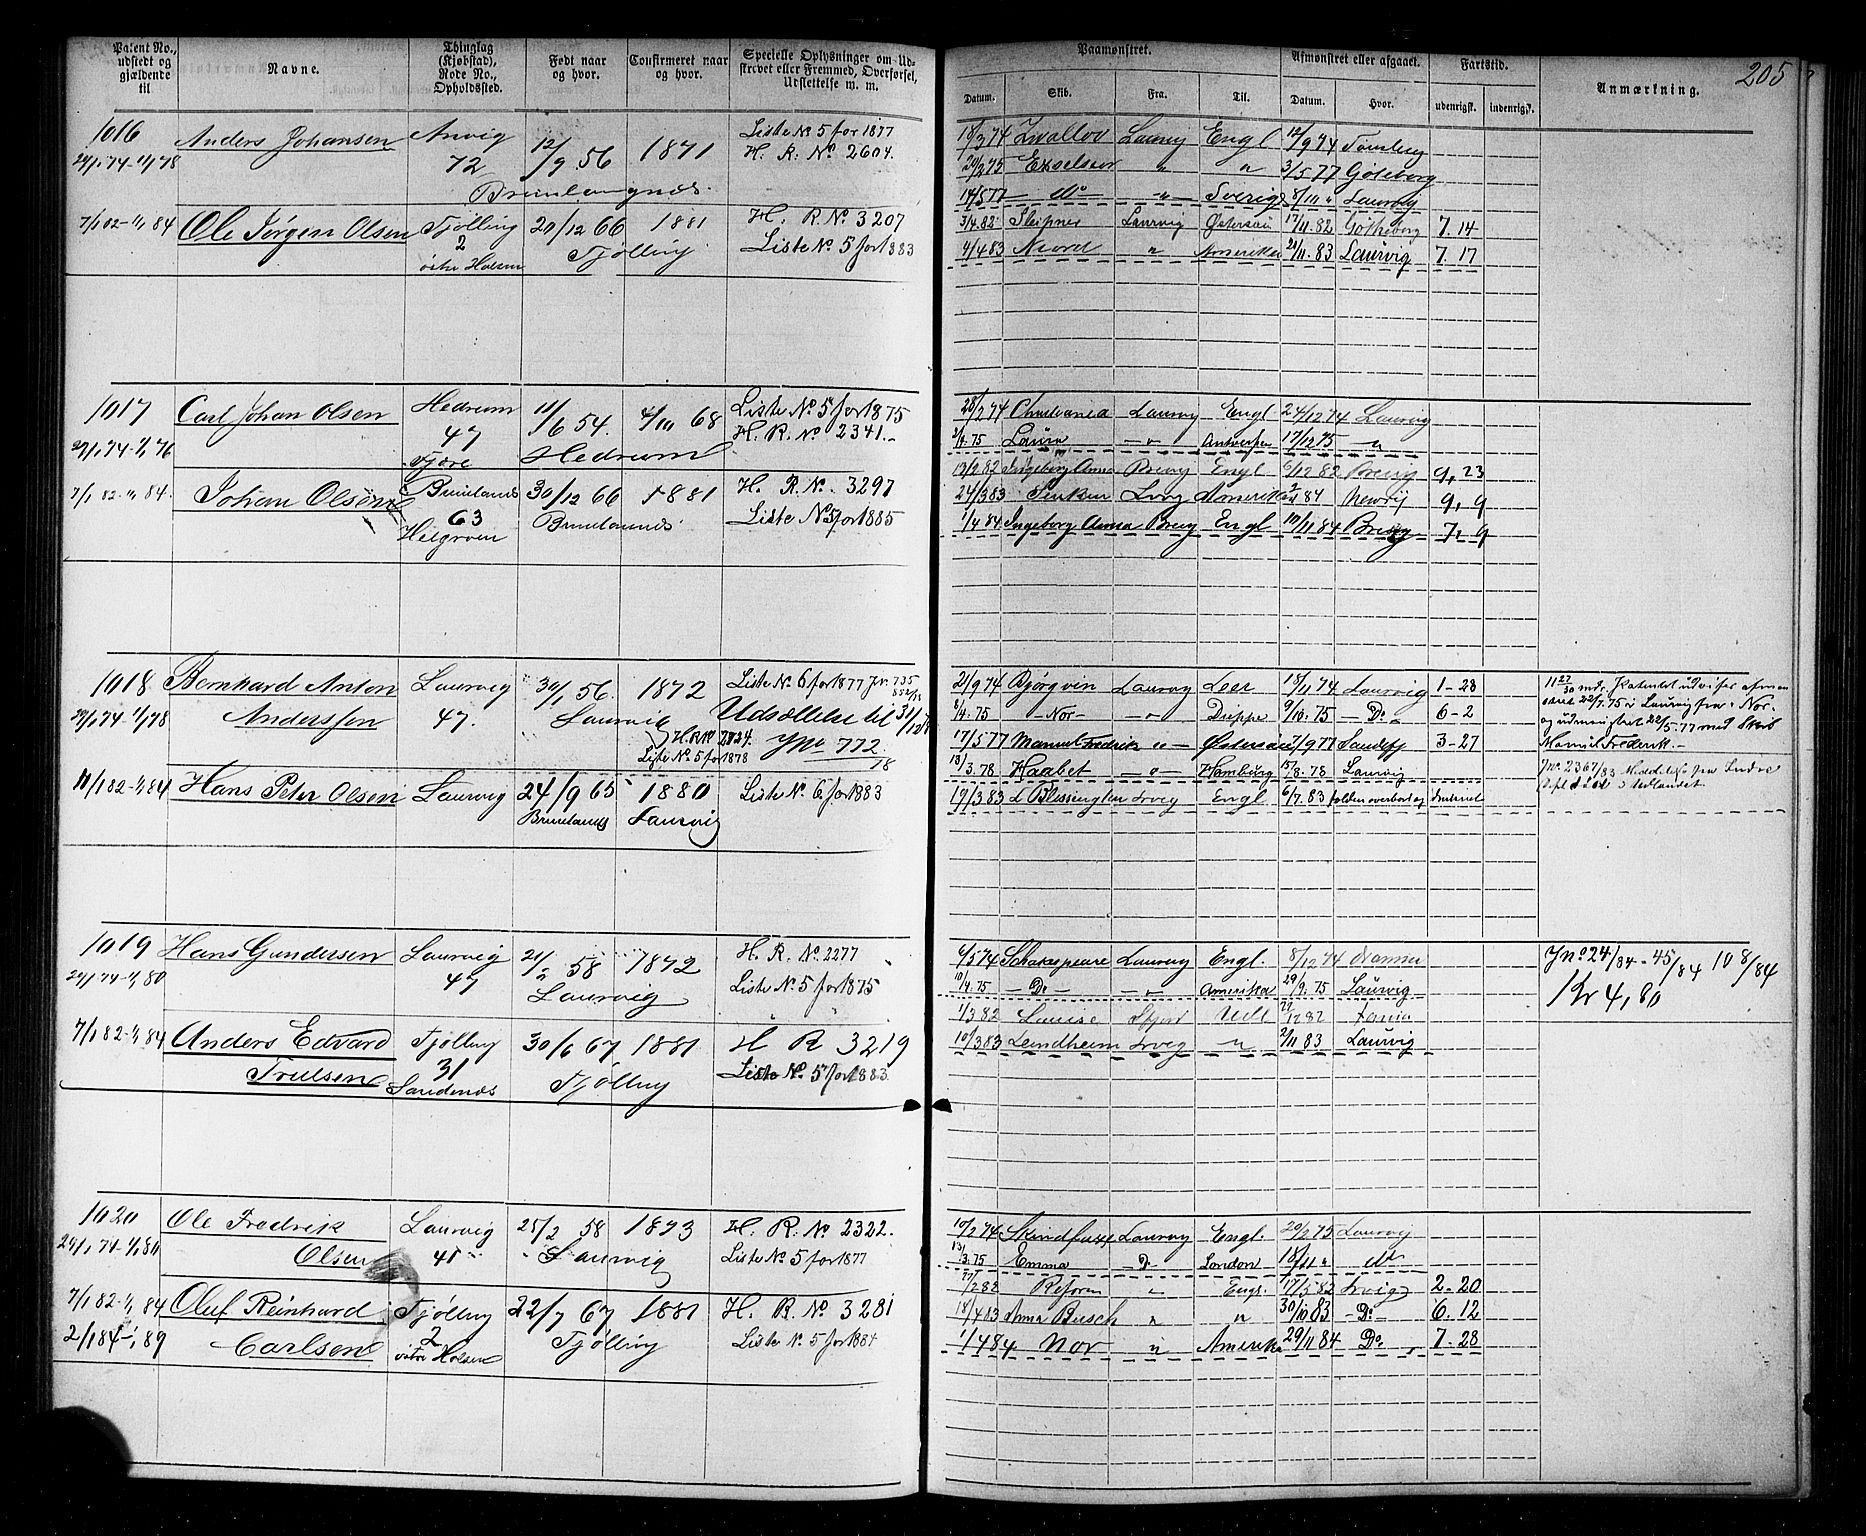 Patent No., udstedt og gjældende til
Navne.
Thinglag (Kjøbstad), Rode No., Opholdssted.
Født naar og hvor.
Confirmeret naar og hvor.
Specielle Oplysninger om Udskrevet eller Fremmed, Overførsel, Udslettelse m. m.
Paamønstret.
Datum. Skib. Fra. Til.
Afmønstret eller afgaaet.
Datum. Hvor.
Fartstid.
udenrigsk. indenrigsk.
Anmærkning.
205
1016 Anders Johansen 72 12/9 56 1871 Liste No 5 for 1877
H. R. No 2604.
Brunlangnæs.
18/3 74 Laurvig Engl 12/9 74 Tønsberg
29/3 75 Exselsior " " 3/5 77 Gøteborg
14/5 77 — do — " Sverige Laurvig
7/1 82-1/1 84 Ole Jørgen Olsen Tjølling 2 østre Halsen 20/12 66 Tjølling 1881 H. R. No 3207
Liste No. 5 for 1883
3/4 82 Sleipner Laurvig Østersøen 17/11 82 Gøtheborg 7. 14
4/4 83 Njord " Amerika 28/11 83 Laurvig 7. 17
1017 Carl Johan Olsen Hedrum 47 Tjøre 11/6 54. Hedrum 4/10 68 Liste No. 5 for 1875
H. R. No 2341.-
28/2 74 Christiania Laurvig Engl 24/12 74 Laurvig
3/4 75 Laura — " — Antwerpen 17/12 75 "
7/1 82-1/1 84. Johan Olsen Brunlanæs 63 Helgeroen 30/12 66 Brunlanæs 1881 H. R. No. 3297
Liste No 5 for 1885
13/2 82 Ingeborg Anna Brevig Engl 6/12 82 Brevig 9, 23
24/3 83 Lvig Amerika 84 Newrij 9, 9
1/4 84 Ingeborg Anna Brevig Engl 10/11 84 Brevig 7, 9
1018 Bernhard Anton Anderssen Laurvig 47. 30/1 56. Laurvig 1872 Liste No 6 for 1877 Jn. 735
Udsættelse til 31/12 78
H. R No 2824. Jno 772. 78
Liste No 5 for 1878
21/9 74 Bjørgvin Laurvig Leer 18/11 74 Laurvig 1-28
8/4 75 — Nor — — " — Dieppe 9/10 75 — Do — 6-2
17/5 77 Manuel Fredrik " — Østersøen 7/9 77 Sandefj 3-27
18/3.78 Haabet — " — Hamburg 15/8.78 Laurvig
Patentet udviser afmønstret 22/7.75 i Laurvig fra "Nor"
og udmønstret 22/5.77 med Skib
Manuel Frederik. —
11/1 82-1/1 84 Hans Peter Olsen Laurvig 24/9 65 Brunlanæs 1880 Laurvig Liste No. 6 for 1883
19/3 83 L. Blessington Lvig Engl 6/7.83 falden overbord og druknet
Jno. 2367/83
1019 Hans Gundersen Laurvig 47 21/2 58 Laurvig 1872 H. R. No. 2277
24/1 74-1/1 80 Liste No. 5 for 1875
6/5 74 Schakespeare Laurvig Engl. 8/12 74 Drammen
10/4.75 — Do — — " — Amerika 29/9.75 Laurvig
Jno 24/84 - 45/84 108/84
1 Kr 4,80
7/1 82-1/1 84 Anders Edvard Trulsen Tjølling 31 Sandenæs 30/6 67 Tjølling 1881 H R 3219
Liste No. 5 for 1883.
1/3 82 Louise Sfjord Udl 12 82
10/3 83 Lindheim Lvig " 2/11 83 Laurvig
1020 Ole Fredrik Olsen Laurvig 41 25/2 58 Laurvig 1873 H. R. No 2322.
Liste No. 5 for 1877
10/2 74 Skindfaxe Laurvig Engl. 20/2 75 Laurvig
13/3.75 Emma — D. — London 18/11 " do
7/1 82-1/1 84 2/1 84-1/1 89 Oluf Reinhard Carlsen Tjølling 2 østre Halsen 22/7 67 Tjølling 1881 H. R. No 3281
Liste No. 5 for 1884
27/2 82 Reform " Engl. 17/11 82 Lvig 2-20
18/4 83 Anna Busch " " 30/10 83 — Do — 6. 12
1/4 84 Nor " Amerika 29/11 84 Do 7-28